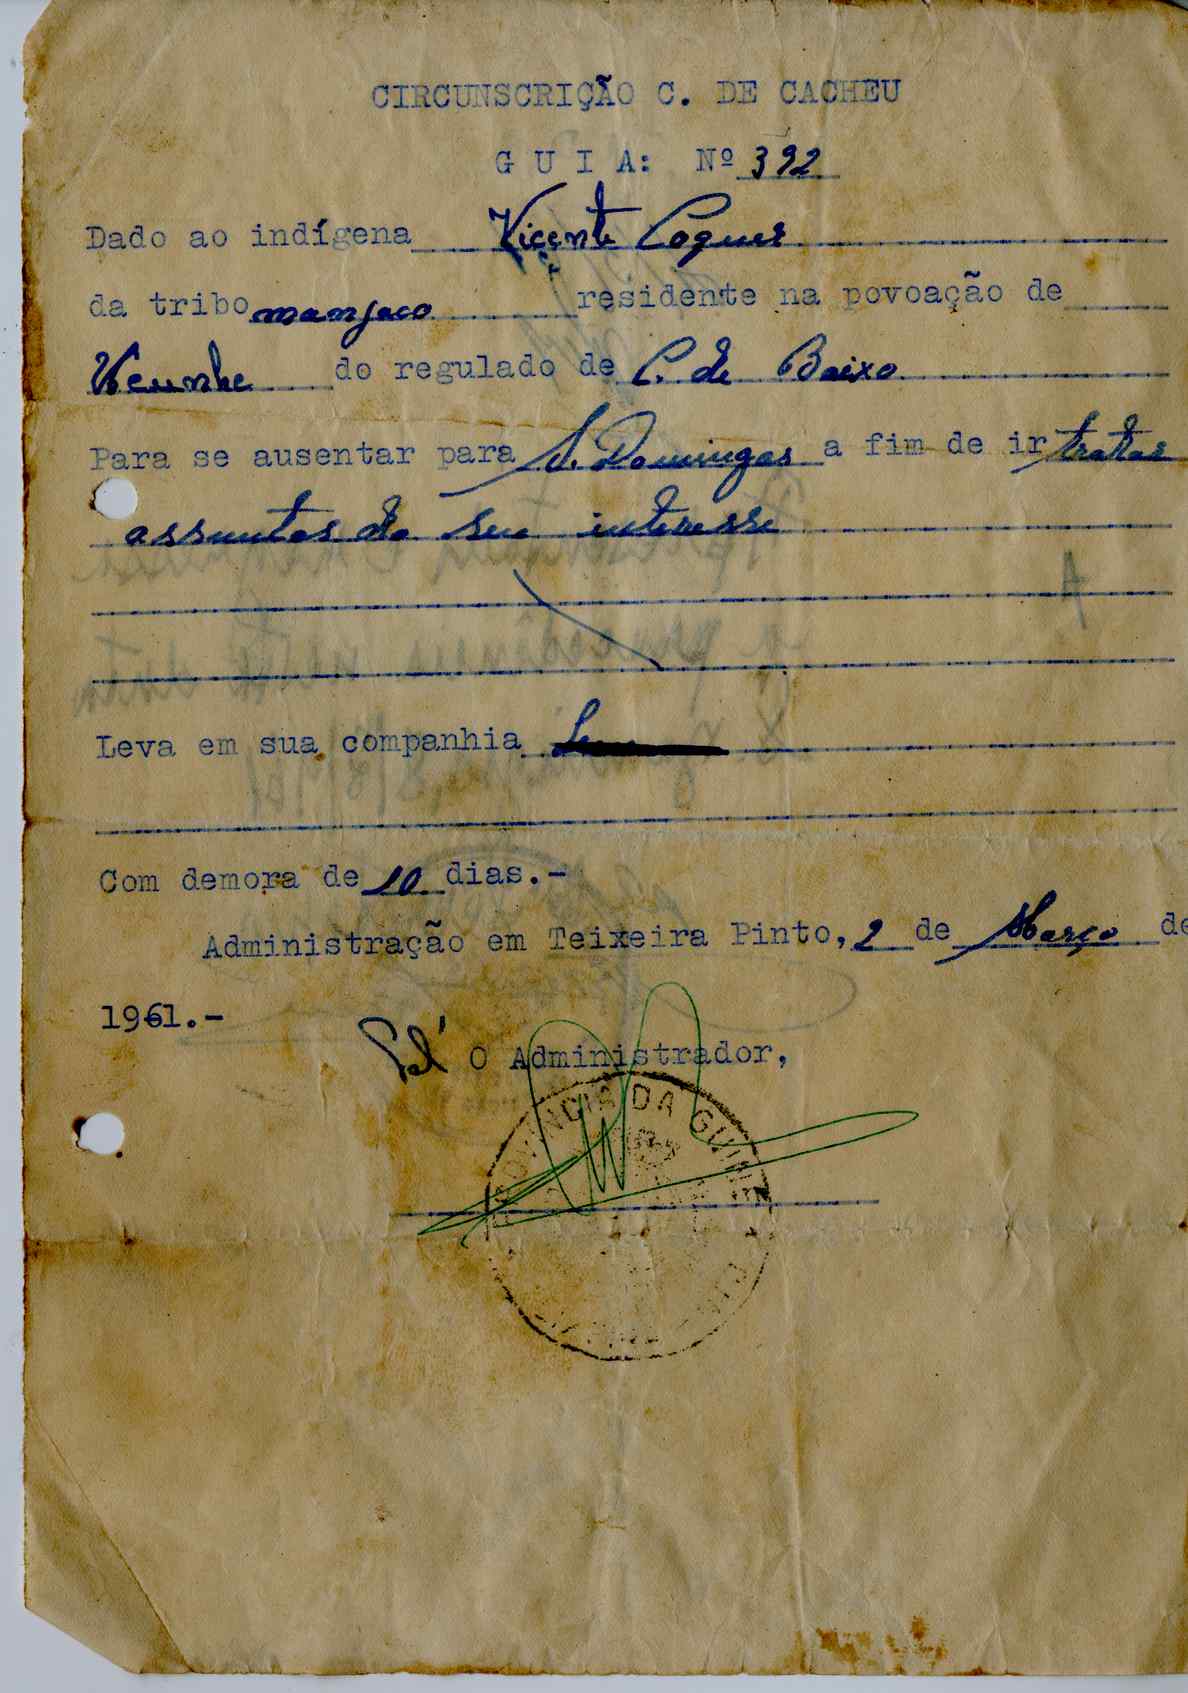 CIRCUNSCRIÇÃO C. DE CACHEU
G U I A: Nº 392
Dado ao indígena Vicente
da tribo manjaco residente na povoação de
do regulado de C. de Baixo
Para se ausentar para S. Domingos a fim de ir tratar
assuntos do seu interesse
Leva em sua companhia
Com demora de 10 dias.-
Administração em Teixeira Pinto, 2 de Março de
1961.-
Pel' O Administrador,
PROVÍNCIA DA GUINÉ